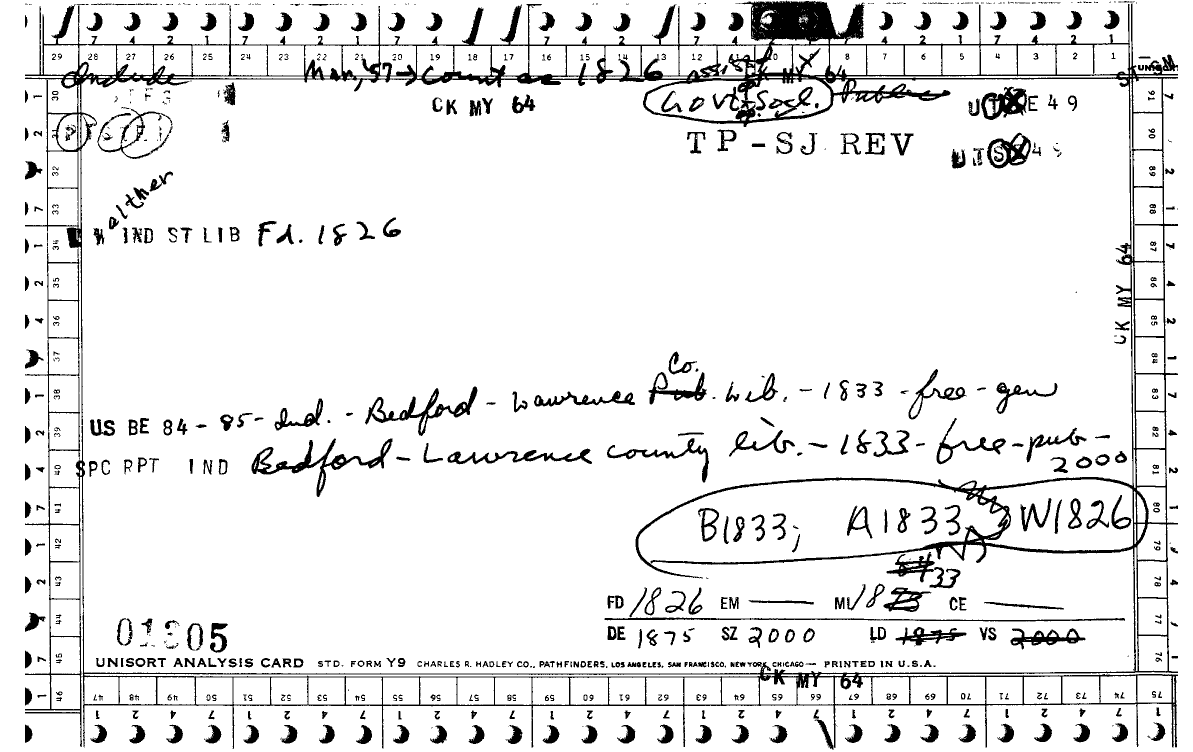 7 4 2 1 7 4 2 1 7 4 2 1 7 4 2 1 7 4 2 1 7 4 2 1
29 28 27 26 25 24 23 22 21 20 19 18 17 16 15 14 13 12 10 8 7 6 5 4 3 2 1
Include Mar, '57 → Count as 1826 CK MY 64
CK MY 64 Govt-Socl. Public E 49
TP-SJ REV
Walther
IND ST LIB Fd. 1826
CK MY 64
Co.
US BE 84-85-Ind. - Bedford - Lawrence Pub. Lib. - 1833 - free - gen
SPC RPT IND Bedford - Lawrence county lib. - 1833 - free - pub -
2000
B1833; A1833 W1826
33
FD 1826 EM — MI 18 CE —
DE 1875 SZ 2000 LD 1875 VS 2000
01305
UNISORT ANALYSIS CARD STD. FORM Y9 CHARLES R. HADLEY CO., PATHFINDERS, LOS ANGELES, SAN FRANCISCO, NEW YORK, CHICAGO — PRINTED IN U.S.A.
CK MY 64
46 47 48 49 50 51 52 53 54 55 56 57 58 59 60 61 62 63 64 65 66 67 68 69 70 71 72 73 74 75
1 2 4 7 1 2 4 7 1 2 4 7 1 2 4 7 1 2 4 7 1 2 4 7 1 2 4 7 1